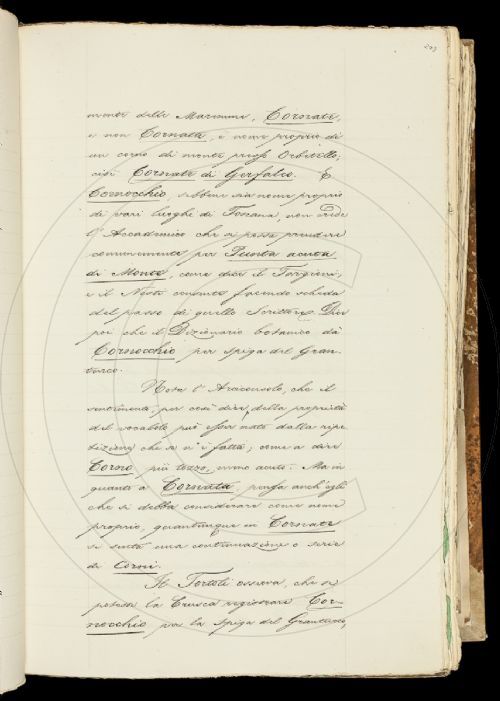 293
monte delle Maremme, Cornate,
e non Cornata, è nome proprio di
un corno di monte presso Orbitello;
cioè Cornate di Gerfalco. E
Cornocchio, sebbene sia nome proprio
di vari luoghi di Toscana, non crede
l'Accademico che si possa prendere
comunemente per Punta acuta
di Monte, come dice il Targioni,
e il Nesti conante facendo scheda
del passo di quello Scrittore. Dice
poi che il Dizionario botanico dà
Cornocchio per spiga del Gran-
turco.
Nota l'Arciconsolo, che il
sentimento, per così dire, della proprietà
del vocabolo può esser nato dalla ripe
tizione che se n'è fatta; come a dire
Corno più tozzo, meno acuto. Ma in
quanto a Cornata, pensa anch'egli
che si debba considerare come nome
proprio, quantunque in Cornate
si senta una continuazione o serie
di Corni.
Il Tortoli osserva, che se
potesse la Crusca registrare Cor-
nocchio per la Spiga del Granturco,